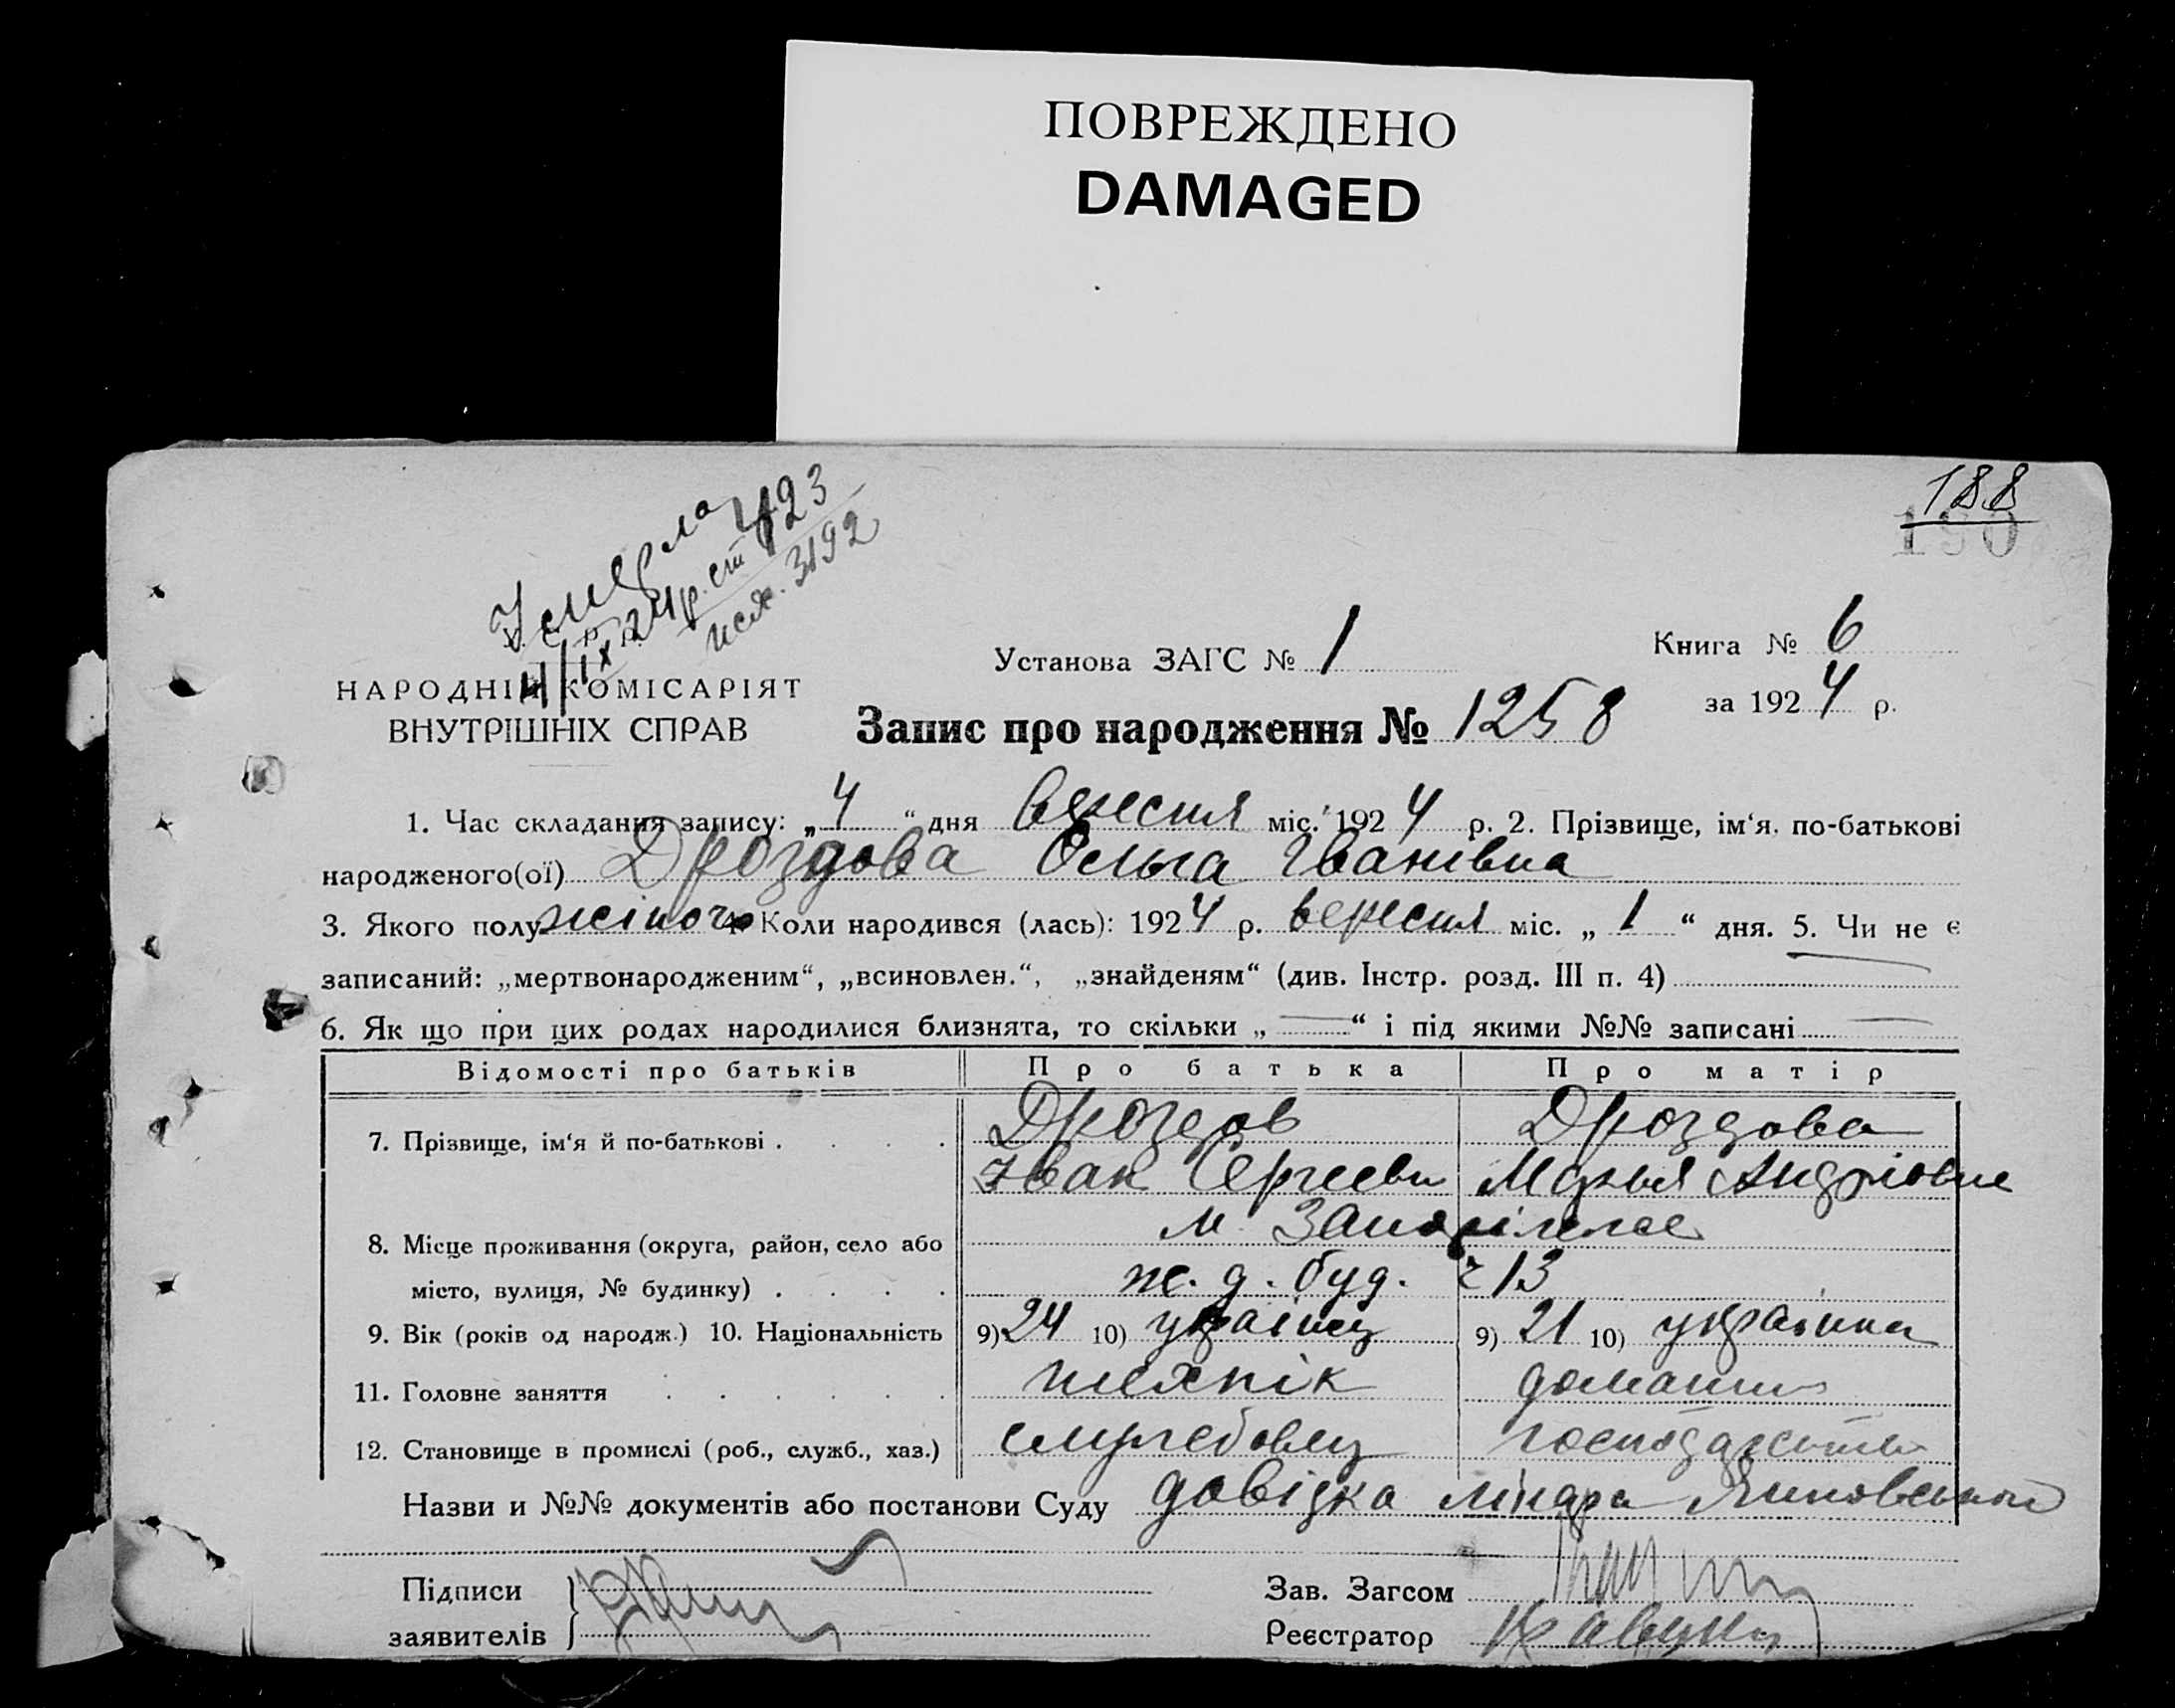 ПОВРЕЖДЕНО
DAMAGED
188
190
Умерла
4/IX 24 р. ст 423
исх. 3192
НАРОДНІЙ КОМІСАРІЯТ
ВНУТРІШНІХ СПРАВ
Установа ЗАГС № 1
Книга № 6
за 1924 р.
Запис про народження № 1258
1. Час складання запису: „4“ дня вересня міс. 1924 р. 2. Прізвище, ім‘я, по-батькові
народженого(ої) Дроздова Ольга Іванівна
3. Якого полу жіноч 4. Коли народився (лась): 1924 р. вересня міс. „1“ дня. 5. Чи не є
записаний: „мертвонародженим“, „всиновлен.“, „знайденям“ (див. Інстр. розд. III п. 4)
6. Як що при цих родах народилися близнята, то скільки „—“ і під якими №№ записані —
Відомості про батьків Про батька Про матір
7. Прізвище, ім‘я й по-батькові . . . . Дроздов Дроздова
Іван Сергеєви Марья Андріовна
8. Місце проживання (округа, район, село або м. Запоріжжє
місто, вулиця, № будинку) . . . . ж. д. буд. ч 13
9. Вік (років од народж.) 10. Національність 9) 24 10) українец 9) 21 10) украинка
11. Головне заняття . . . . . . технік домашнє
12. Становище в промислі (роб., служб., хаз.) службовец господарство
Назви и №№ документів або постанови Суду довідка лікаря
Підписи
заявителів
Зав. Загсом
Реєстратор